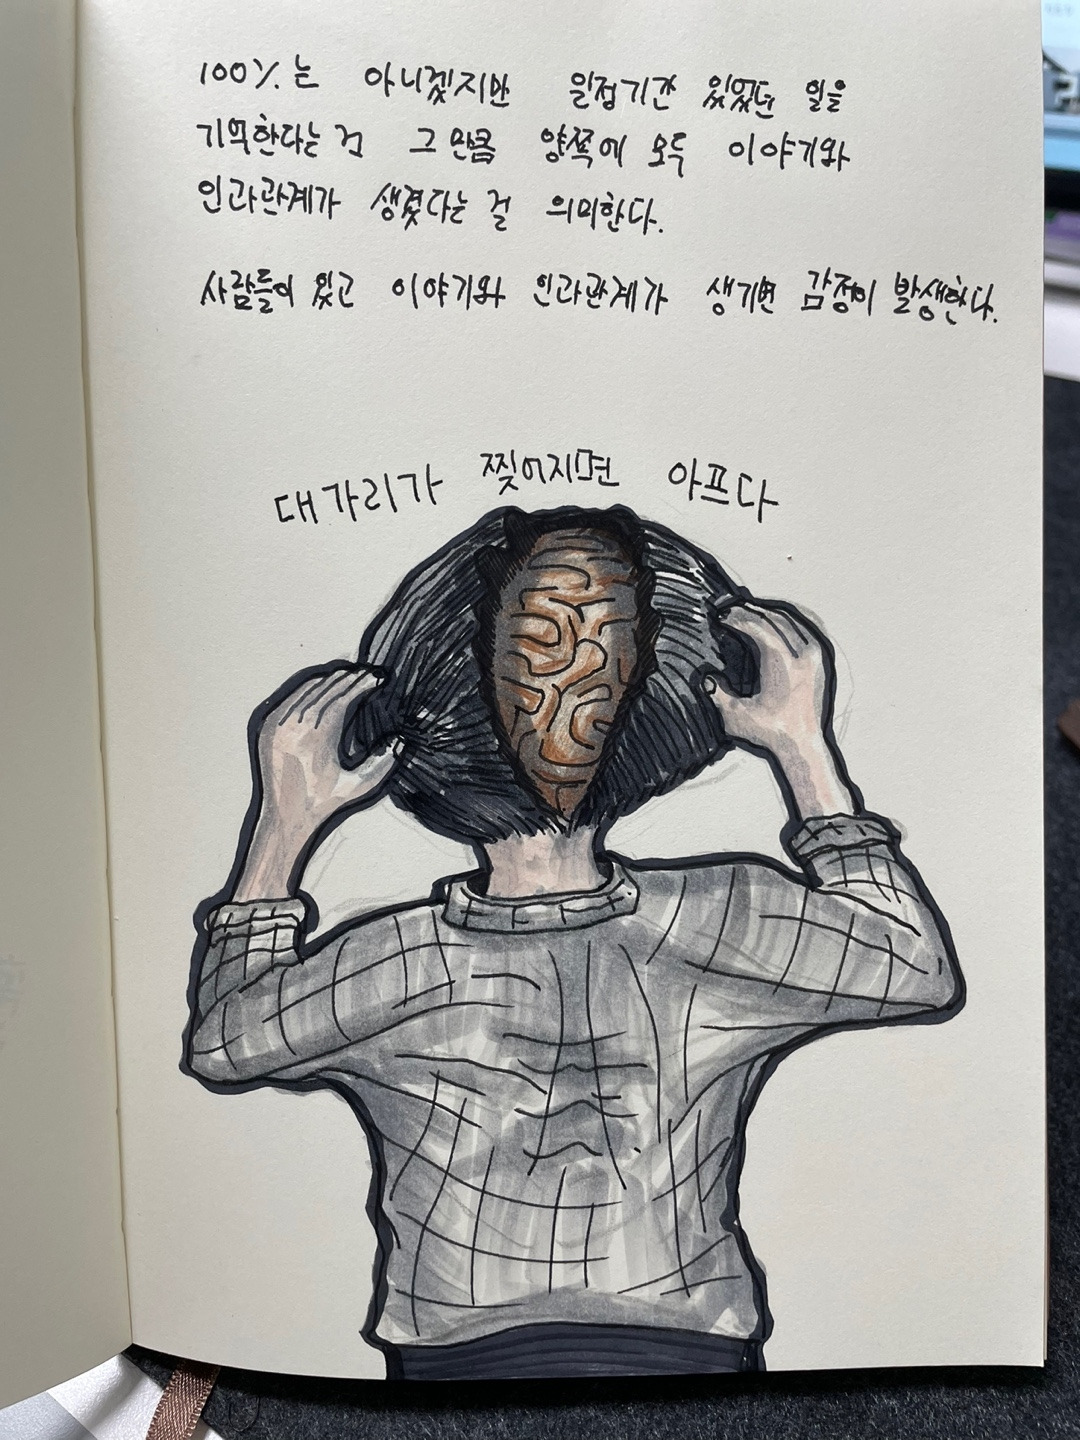 100%는 아니겠지만 일정기간 있었던 일을
기억한다는 건 그만큼 양쪽에 모두 이야기와
인과관계가 생겼다는 걸 의미한다.
사람들이 있고 이야기와 인과관계가 생기면 감정이 발생한다.
대가리가 찢어지면 아프다